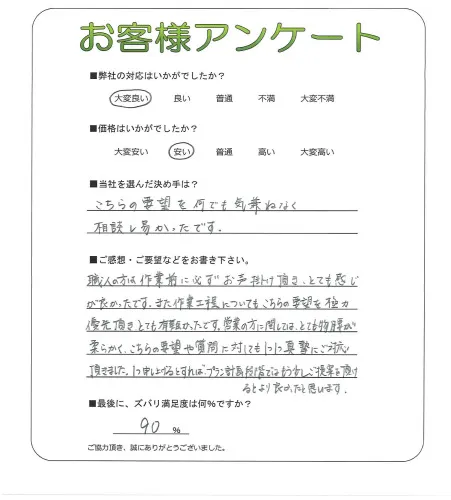 お客様アンケート
■弊社の対応はいかがでしたか？
大変良い 良い 普通 不満 大変不満
■価格はいかがでしたか？
大変安い 安い 普通 高い 大変高い
■当社を選んだ決め手は？
こちらの要望を何でも気兼ねなく
相談し易かったです.
■ご感想・ご要望などをお書き下さい。
職人の方は作業前に必ずお声掛け頂き、とても感じ
が良かったです。また作業工程についてもこちらの要望を極力
優先頂きとても有難かったです。営業の方に関しては、とても物腰が
柔らかくて、こちらの要望や質問に対しても1つ1つ真摯にご対応
頂きました。1つ申し上げるとすれば、プラン計画段階ではもう少しご提案を頂け
るとより良かったと思います.
■最後に、ズバリ満足度は何％ですか？
90 ％
ご協力頂き、誠にありがとうございました。